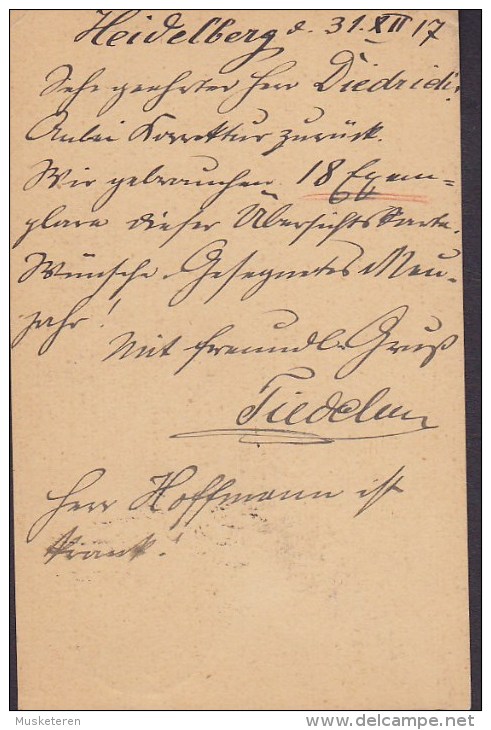 Heidelberg d. 31. XII 17
Sehr geehrter Herr Diedrich!
Anbei Korrektur zurück.
Wir gebrauchen 18 Exem=
plare dieser Übersichtskarte.
Wünsche Gesegnetes Neu-
jahr!
Mit freundl. Gruß
Herr Hoffmann ist
krank!
Musketeren
www.delcampe.net